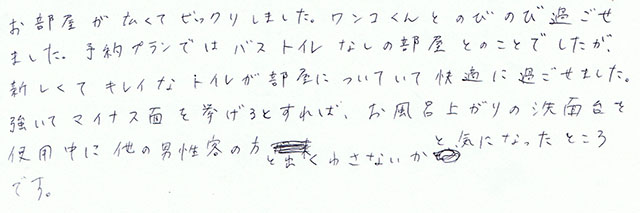 お部屋が広くてビックリしました。ワンコくんとのびのび過ごせ
ました。予約プランではバストイレなしの部屋とのことでしたが、
新しくてキレイなトイレが部屋についていて快適に過ごせました。
強いてマイナス面を挙げるとすれば、お風呂上がりの洗面台を
使用中に他の男性客の方と出くわさないかと気になったところ
です。